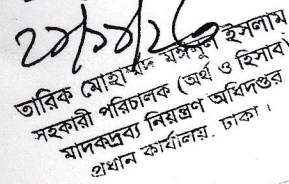 তারিক মোহাম্মদ মঈনুল ইসলাম
সহকারী পরিচালক (অর্থ ও হিসাব)
মাদকদ্রব্য নিয়ন্ত্রণ অধিদপ্তর
প্রধান কার্যালয়, ঢাকা।